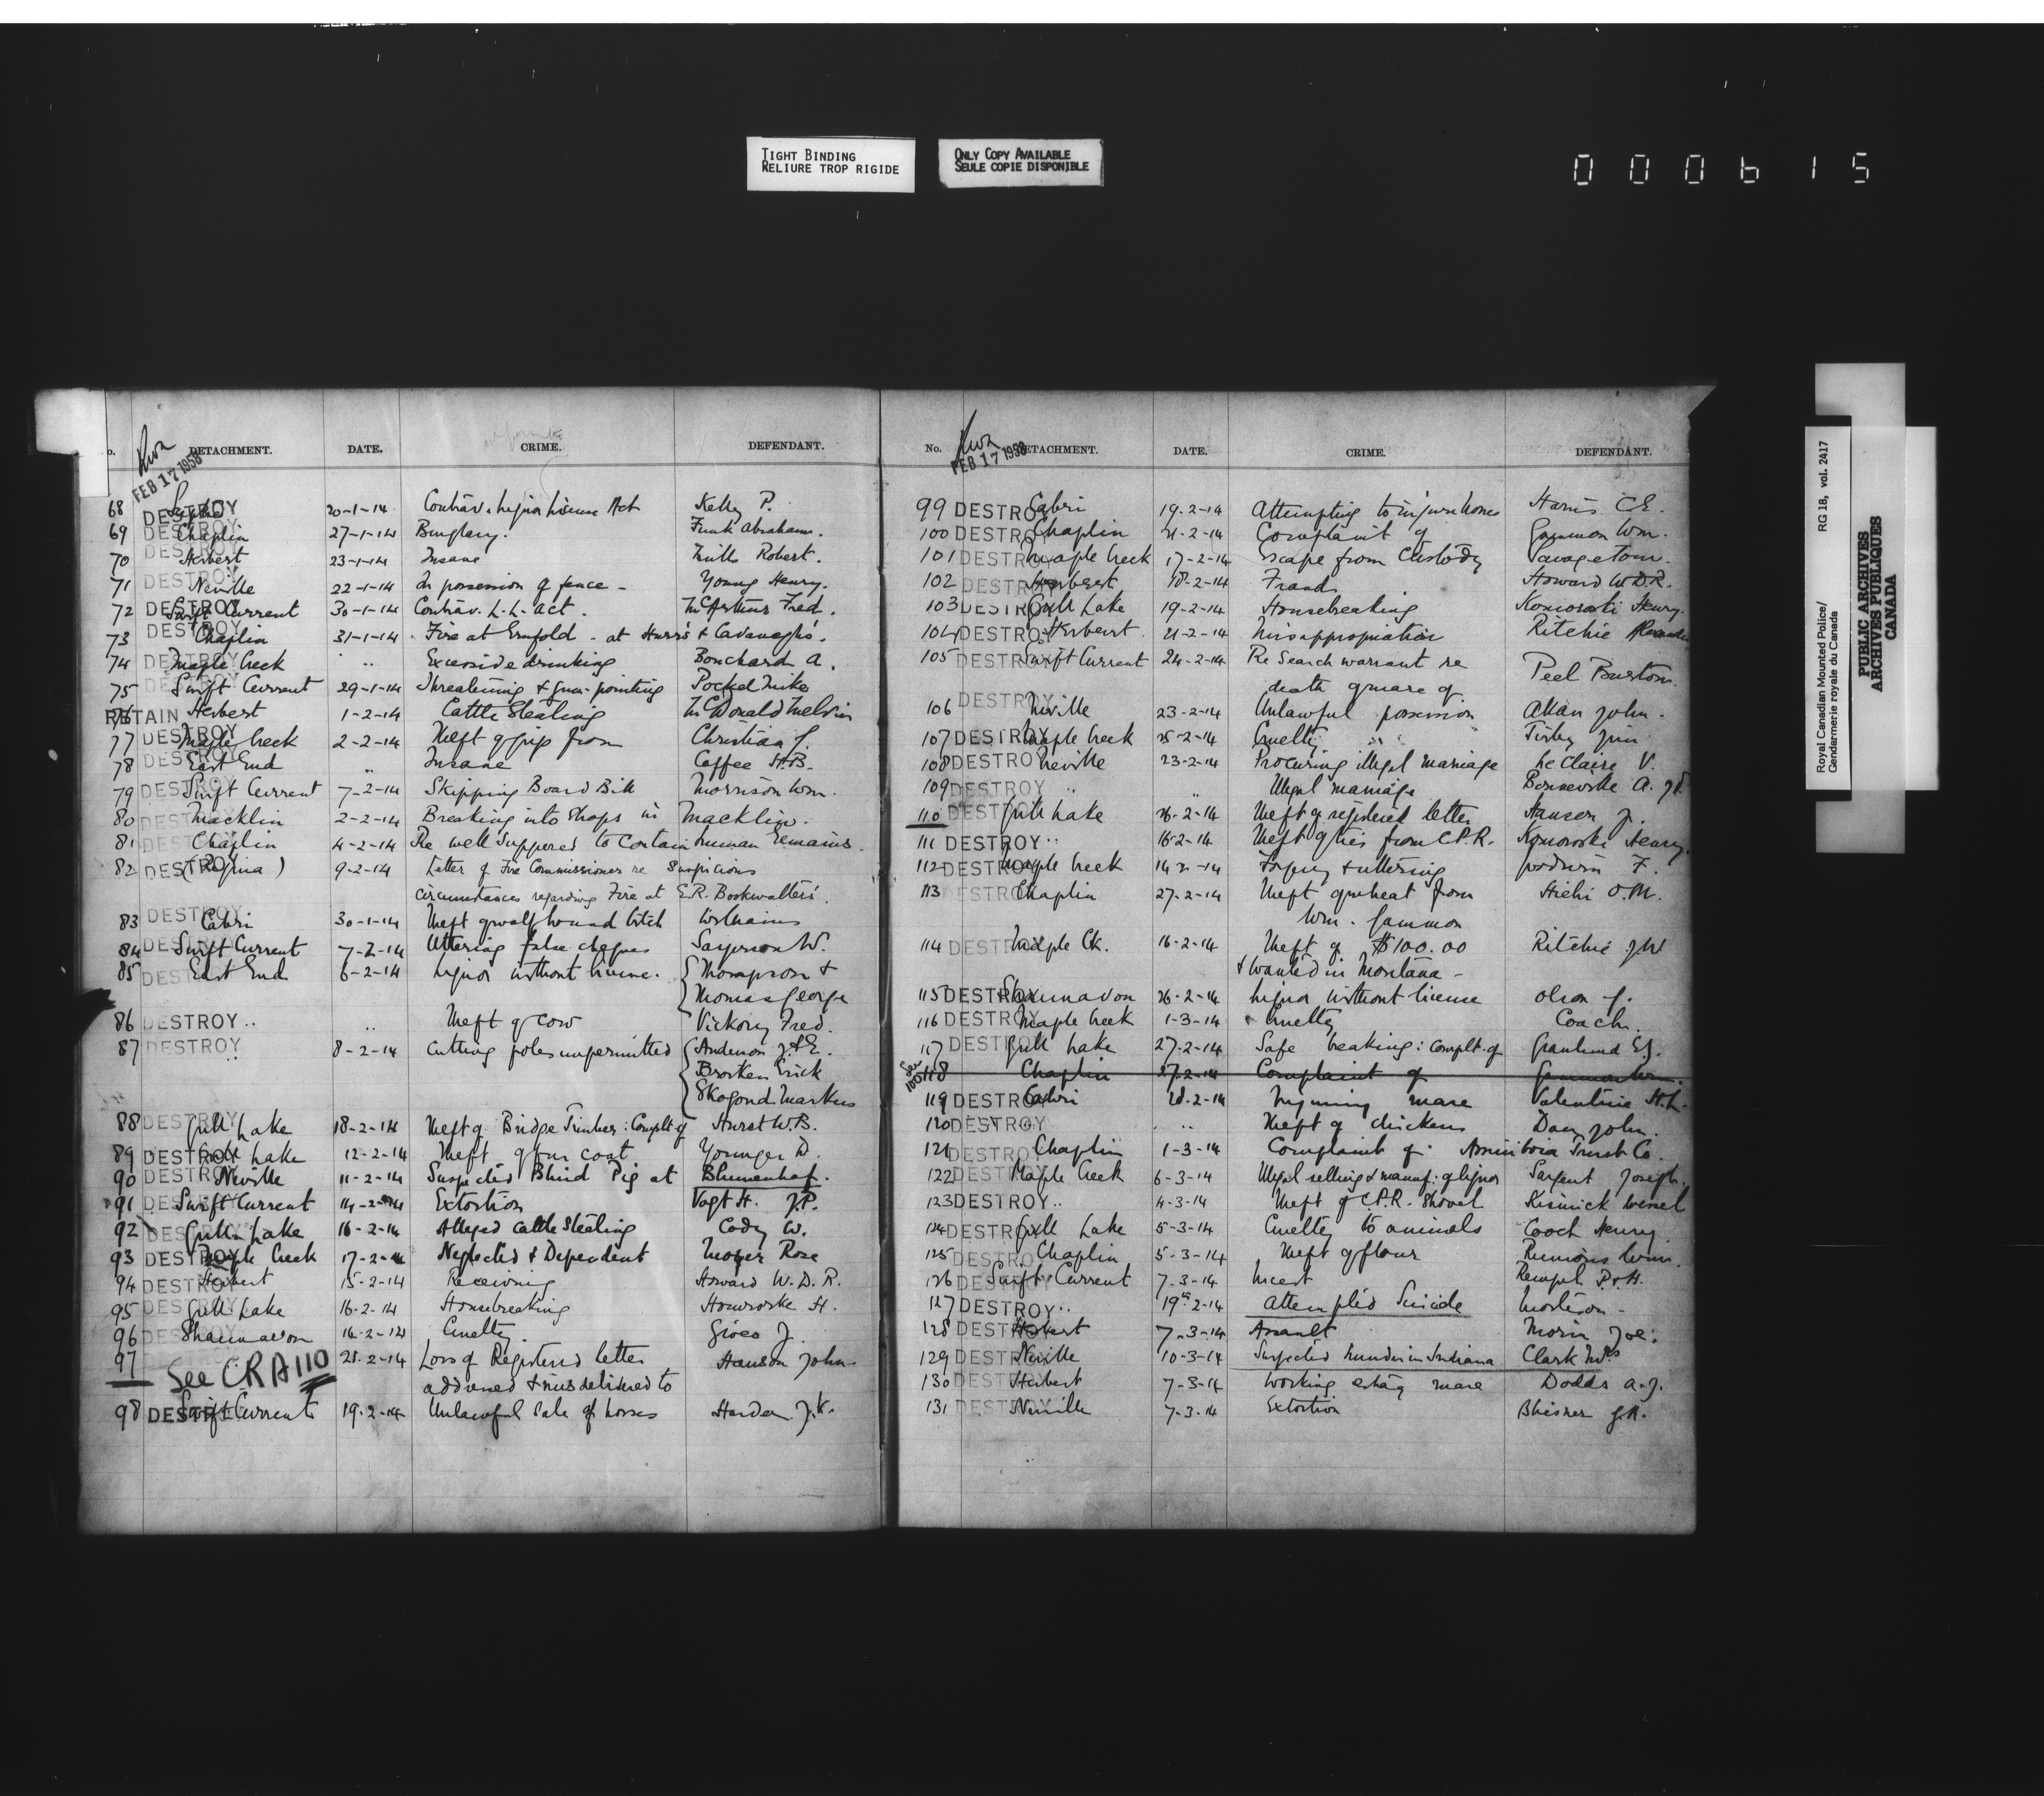 TIGHT BINDING
RELIURE TROP RIGIDE
ONLY COPY AVAILABLE
SEULE COPIE DISPONIBLE
000615
Royal Canadian Mounted Police/ RG 18, vol. 2417
Gendarmerie royale du Canada
PUBLIC ARCHIVES
ARCHIVES PUBLIQUES
CANADA
DETACHMENT. DATE. CRIME. DEFENDANT.
FEB 17 1958
68 DESTROY 20-1-14 Contrav. Liquor License Act Kelly P.
69 DESTROY Chaplin 27-1-14 Burglary. Funk Abraham.
70 DESTROY Herbert 23-1-14 Insane Mills Robert.
71 DESTROY Neville 22-1-14 In possession of fence - Young Henry.
72 DESTROY Swift Current 30-1-14 Contrav. L.L. Act. McArthur Fred.
73 DESTROY Chaplin 31-1-14 Fire at Ernfold - at Hurr's & Cavanagh's.
74 DESTROY Maple Creek " Excessive drinking Bouchard A.
75 DESTROY Swift Current 29-1-14 Threatening & gun-pointing Mike
76 RETAIN Herbert 1-2-14 Cattle Stealing McDonald Melvin
77 DESTROY Maple Creek 2-2-14 Theft of grip from Christian J.
78 DESTROY East End " Insane Coffee H.B.
79 DESTROY Swift Current 7-2-14 Skipping Board Bill Morrison Wm.
80 DESTROY Macklin 2-2-14 Breaking into Shops in Macklin.
81 DESTROY Chaplin 4-2-14 Re well Supposed to Contain human Remains.
82 DESTROY (Regina) 9-2-14 Letter of Fire Commissioner re Suspicious
circumstances regarding Fire at E.R. Bookwalter's.
83 DESTROY Cabri 30-1-14 Theft of wolf hound bitch
84 DESTROY Swift Current 7-2-14 Uttering false cheques W.
85 DESTROY East End 6-2-14 Liquor without license. Thompson &
Thomas George
86 DESTROY " " Theft of Cow Vickory Fred.
87 DESTROY " 8-2-14 Cutting poles unpermitted Anderson J.&E.
Brorken Erick
Skogond Markus
88 DESTROY Gull Lake 18-2-14 Theft of Bridge Timber: Complt of Hurst W.B.
89 DESTROY Gull Lake 12-2-14 Theft of fur coat Younger D.
90 DESTROY Neville 11-2-14 Suspected Blind Pig at Blumenhof.
91 DESTROY Swift Current 14-2-14 Extortion Vogt H. J.P.
92 DESTROY Gull Lake 16-2-14 Alleged Cattle Stealing Cody W.
93 DESTROY Maple Creek 17-2-14 Neglected & Dependent Moyer Rose
94 DESTROY Herbert 15-2-14 Receiving Howard W.D.R.
95 DESTROY Gull Lake 16-2-14 Housebreaking H.
96 DESTROY Shaunavon 16-2-14 Cruelty. J.
97 See CRA 110 21-2-14 Loss of Registered letter Hanson John
addressed & misdelivered to
98 DESTROY Swift Current 19-2-14 Unlawful Sale of horses Harder J.K.
No. DETACHMENT. DATE. CRIME. DEFENDANT.
FEB 17 1958
99 DESTROY Cabri 19-2-14 Attempting to injure horses Harris C.E.
100 DESTROY Chaplin 21-2-14 Complaint of Gammon Wm.
101 DESTROY Maple Creek 17-2-14 Escape from Custody Savage Tom.
102 DESTROY Herbert 18-2-14 Fraud Howard W.D.R.
103 DESTROY Gull Lake 19-2-14 Housebreaking Komoroski Henry.
104 DESTROY Herbert 21-2-14 Misappropriation Ritchie
105 DESTROY Swift Current 24-2-14 Re Search warrant re Peel Burton.
death of mare of
106 DESTROY Neville 23-2-14 Unlawful possession Allan John.
107 DESTROY Maple Creek 25-2-14 Cruelty Jim
108 DESTROY Neville 23-2-14 Procuring illegal marriage LeClaire V.
109 DESTROY " " Illegal marriage Bonneville A.
110 DESTROY Gull Lake 26-2-14 Theft of registered letter Hanson J.
111 DESTROY " 16-2-14 Theft of ties from C.P.R. Komoroski Henry.
112 DESTROY Maple Creek 14-2-14 Forgery & uttering F.
113 DESTROY Chaplin 27-2-14 Theft of wheat from Hichi O.M.
Wm. Gammon
114 DESTROY Maple Ck. 16-2-14 Theft of $100.00 Ritchie J.W
& wanted in Montana -
115 DESTROY Shaunavon 26-2-14 Liquor without license Olson J.
116 DESTROY Maple Creek 1-3-14 Cruelty Coach.
117 DESTROY Gull Lake 27-2-14 Safe breaking: Complt. of Granlund E.J.
See 100 118 Chaplin 27-2-14 Complaint of Gammon Wm.
119 DESTROY Cabri 28-2-14 Injuring mare Valentine H.L.
120 DESTROY " " Theft of chickens Day John.
121 DESTROY Chaplin 1-3-14 Complaint of Assiniboia Trust Co.
122 DESTROY Maple Creek 6-3-14 Illegal selling & manuf: of liquor Sargent Joseph.
123 DESTROY " 4-3-14 Theft of C.P.R. Shovel
124 DESTROY Gull Lake 5-3-14 Cruelty to animals Cooch Henry.
125 DESTROY Chaplin 5-3-14 Theft of flour Wm.
126 DESTROY Swift Current 7-3-14 Incest Rempel P.&H.
127 DESTROY " 19th-2-14 Attempted Suicide Morrison -
128 DESTROY Herbert 7-3-14 Assault Morin Joe.
129 DESTROY Neville 10-3-14 Suspected Murder in Indiana Clark Mrs
130 DESTROY Herbert 7-3-14 Working estray mare Dodds A.J.
131 DESTROY Neville 7-3-14 Extortion J.R.